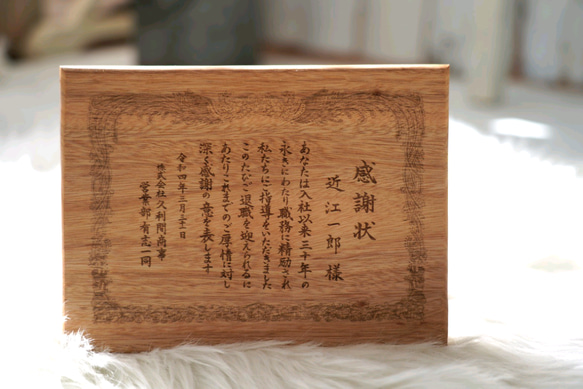 感謝状
近江一郎 様
あなたは入社以来三十年の
永きにわたり職務に精励され
私たちにご指導をいただきました
このたびご退職を迎えられるに
あたりこれまでのご厚情に対し
深く感謝の意を表します
令和四年三月三十一日
株式会社久利問商事
営業部有志一同